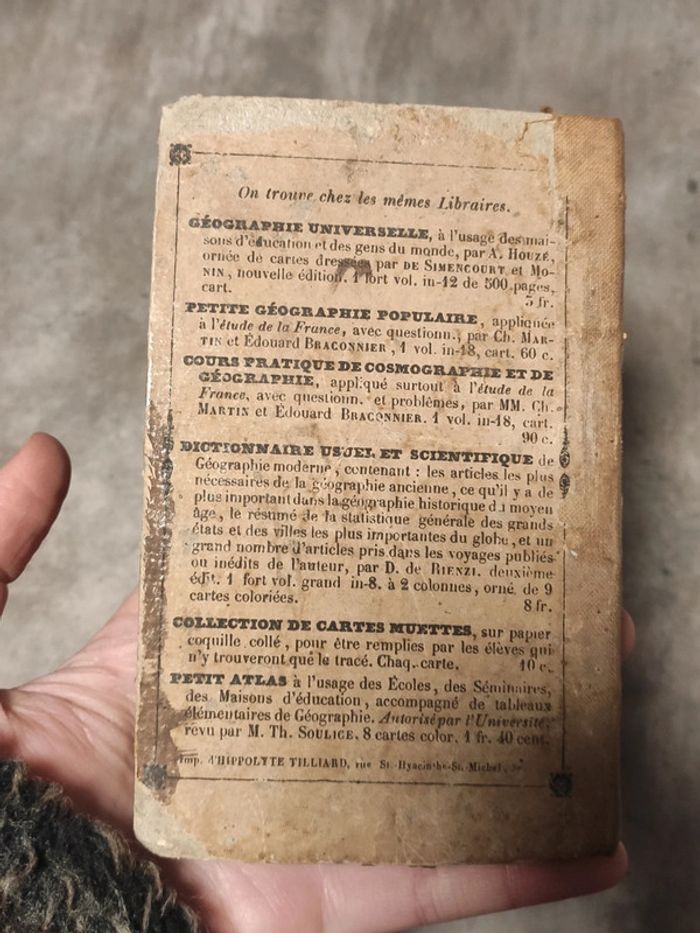 On trouve chez les mêmes Libraires.
GÉOGRAPHIE UNIVERSELLE, à l'usage des mai-
sons d'éducation et des gens du monde, par A. HOUZÉ,
ornée de cartes dressées par DE SIMENCOURT et MO-
NIN, nouvelle édition. 1 fort vol. in-12 de 500 pages,
cart.
5 fr.
PETITE GÉOGRAPHIE POPULAIRE, appliquée
à l'étude de la France, avec questionn., par Ch. MAR-
TIN et Édouard BRACONNIER, 1 vol. in-18, cart. 60 c.
COURS PRATIQUE DE COSMOGRAPHIE ET DE
GÉOGRAPHIE, appliqué surtout à l'étude de la
France, avec questionn. et problèmes, par MM. Ch.
MARTIN et Édouard BRACONNIER. 1 vol. in-18, cart.
90 c.
DICTIONNAIRE USUEL ET SCIENTIFIQUE de
Géographie moderne, contenant : les articles les plus
nécessaires de la géographie ancienne, ce qu'il y a de
plus important dans la géographie historique du moyen
âge, le résumé de la statistique générale des grands
états et des villes les plus importantes du globe, et un
grand nombre d'articles pris dans les voyages publiés
ou inédits de l'auteur, par D. de RIENZI. deuxième
édit. 1 fort vol. grand in-8. à 2 colonnes, orné de 9
cartes coloriées.
8 fr.
COLLECTION DE CARTES MUETTES, sur papier
coquille collé, pour être remplies par les élèves qui
n'y trouveront que le tracé. Chaq. carte. 10 c.
PETIT ATLAS à l'usage des Écoles, des Séminaires,
des Maisons d'éducation, accompagné de tableaux
élémentaires de Géographie. Autorisé par l'Université,
revu par M. Th. SOULICE. 8 cartes color. 1 fr. 40 cent.
Imp. d'HIPPOLYTE TILLIARD, rue St-Hyacinthe-St-Michel,